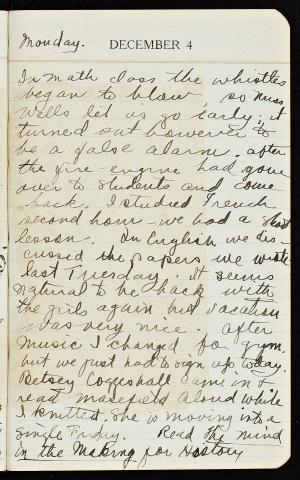 Monday. DECEMBER 4
In math class the whistles
began to blow, so Miss
Wells let us go early, it
turned out however to
be a false alarm, after
the fire-engine had gone
over to Students and come
back. I studied French
second hour - we had a short
lesson. In English we dis-
cussed the papers we wrote
last Tuesday. It seems
natural to be back with
the girls again but vacation
was very nice. After
music I changed for gym,
but we just had to sign up today.
Betsey Coggeshall came in &
read Masefield aloud while
I knitted. She is moving into a
single Friday. Read the Mind
in the Making for History